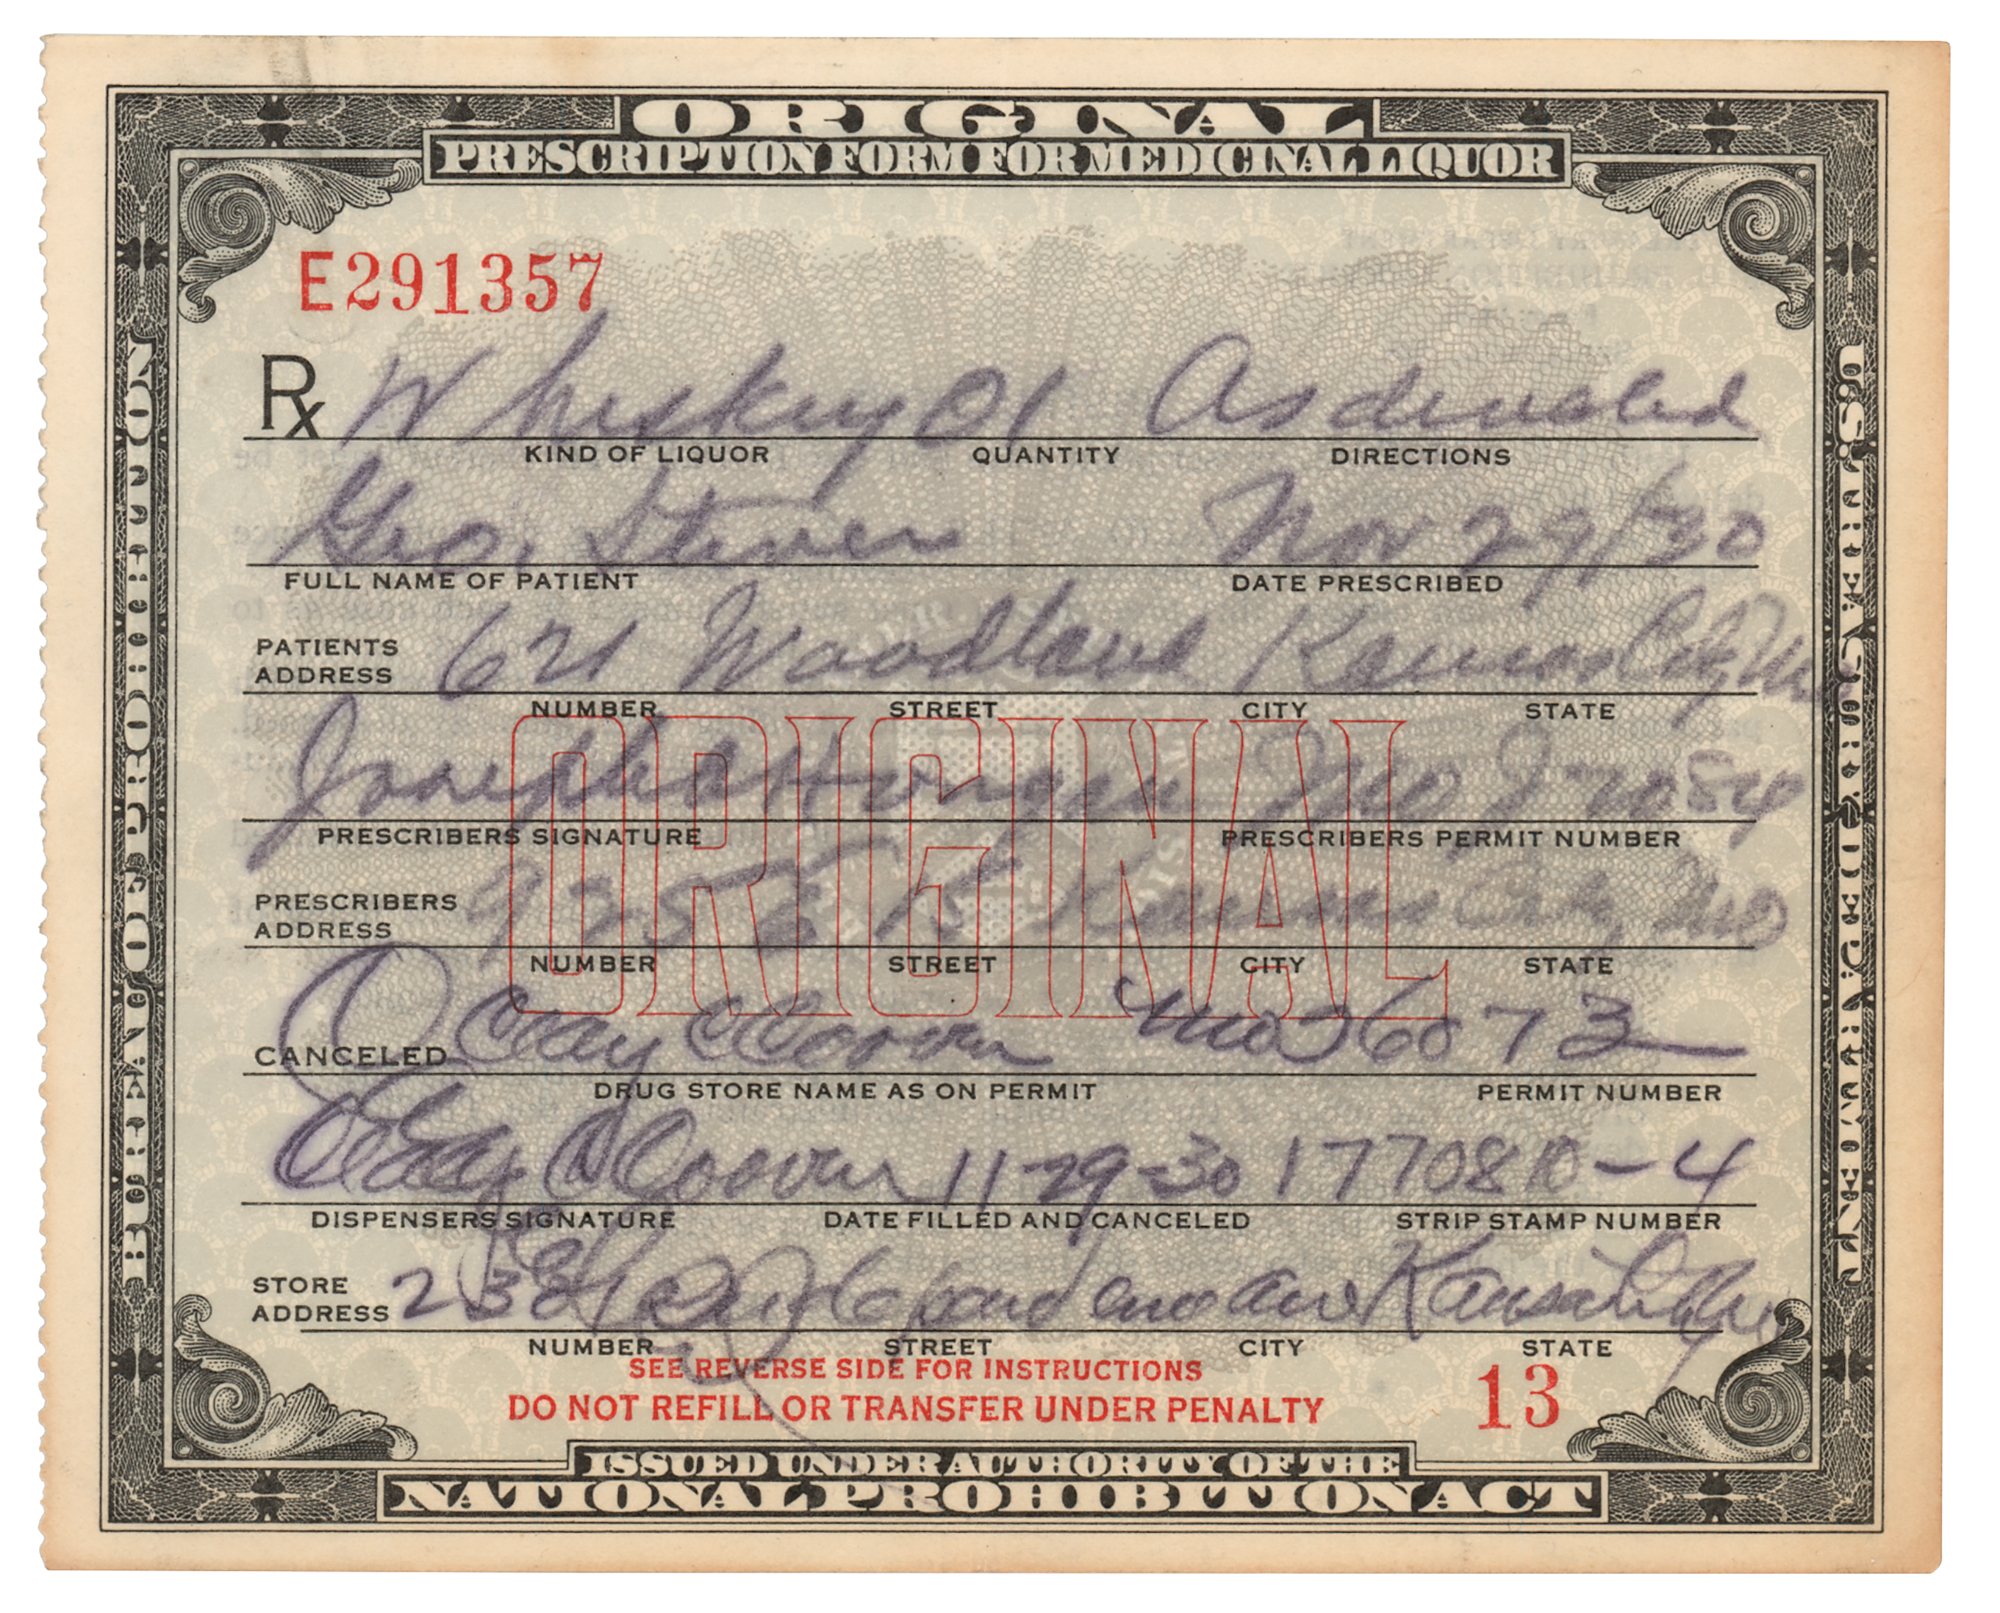 ORIGINAL
PRESCRIPTION FORM FOR MEDICINAL LIQUOR
E291357
Rx Whiskey O1 As directed
KIND OF LIQUOR QUANTITY DIRECTIONS
Geo. Steven Nov 29/30
FULL NAME OF PATIENT DATE PRESCRIBED
PATIENTS ADDRESS 621 Woodland Kansas City Mo
NUMBER STREET CITY STATE
ORIGINAL
Joseph Mo
PRESCRIBERS SIGNATURE PRESCRIBERS PERMIT NUMBER
PRESCRIBERS ADDRESS Kansas City Mo
NUMBER STREET CITY STATE
CANCELED Clay Coover Mo
DRUG STORE NAME AS ON PERMIT PERMIT NUMBER
Clay Coover 11-29-30 1770810-4
DISPENSERS SIGNATURE DATE FILLED AND CANCELED STRIP STAMP NUMBER
STORE ADDRESS Kansas City Mo
NUMBER STREET CITY STATE
SEE REVERSE SIDE FOR INSTRUCTIONS
DO NOT REFILL OR TRANSFER UNDER PENALTY 13
ISSUED UNDER AUTHORITY OF THE
NATIONAL PROHIBITION ACT
U.S. TREASURY DEPARTMENT